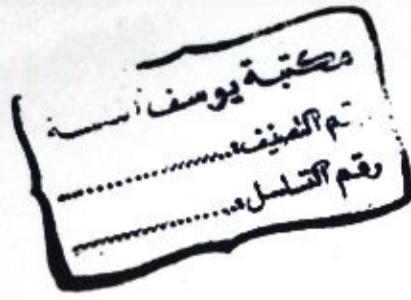 مكتبة يوسف
رقم التصنيف:
رقم التسلسل: